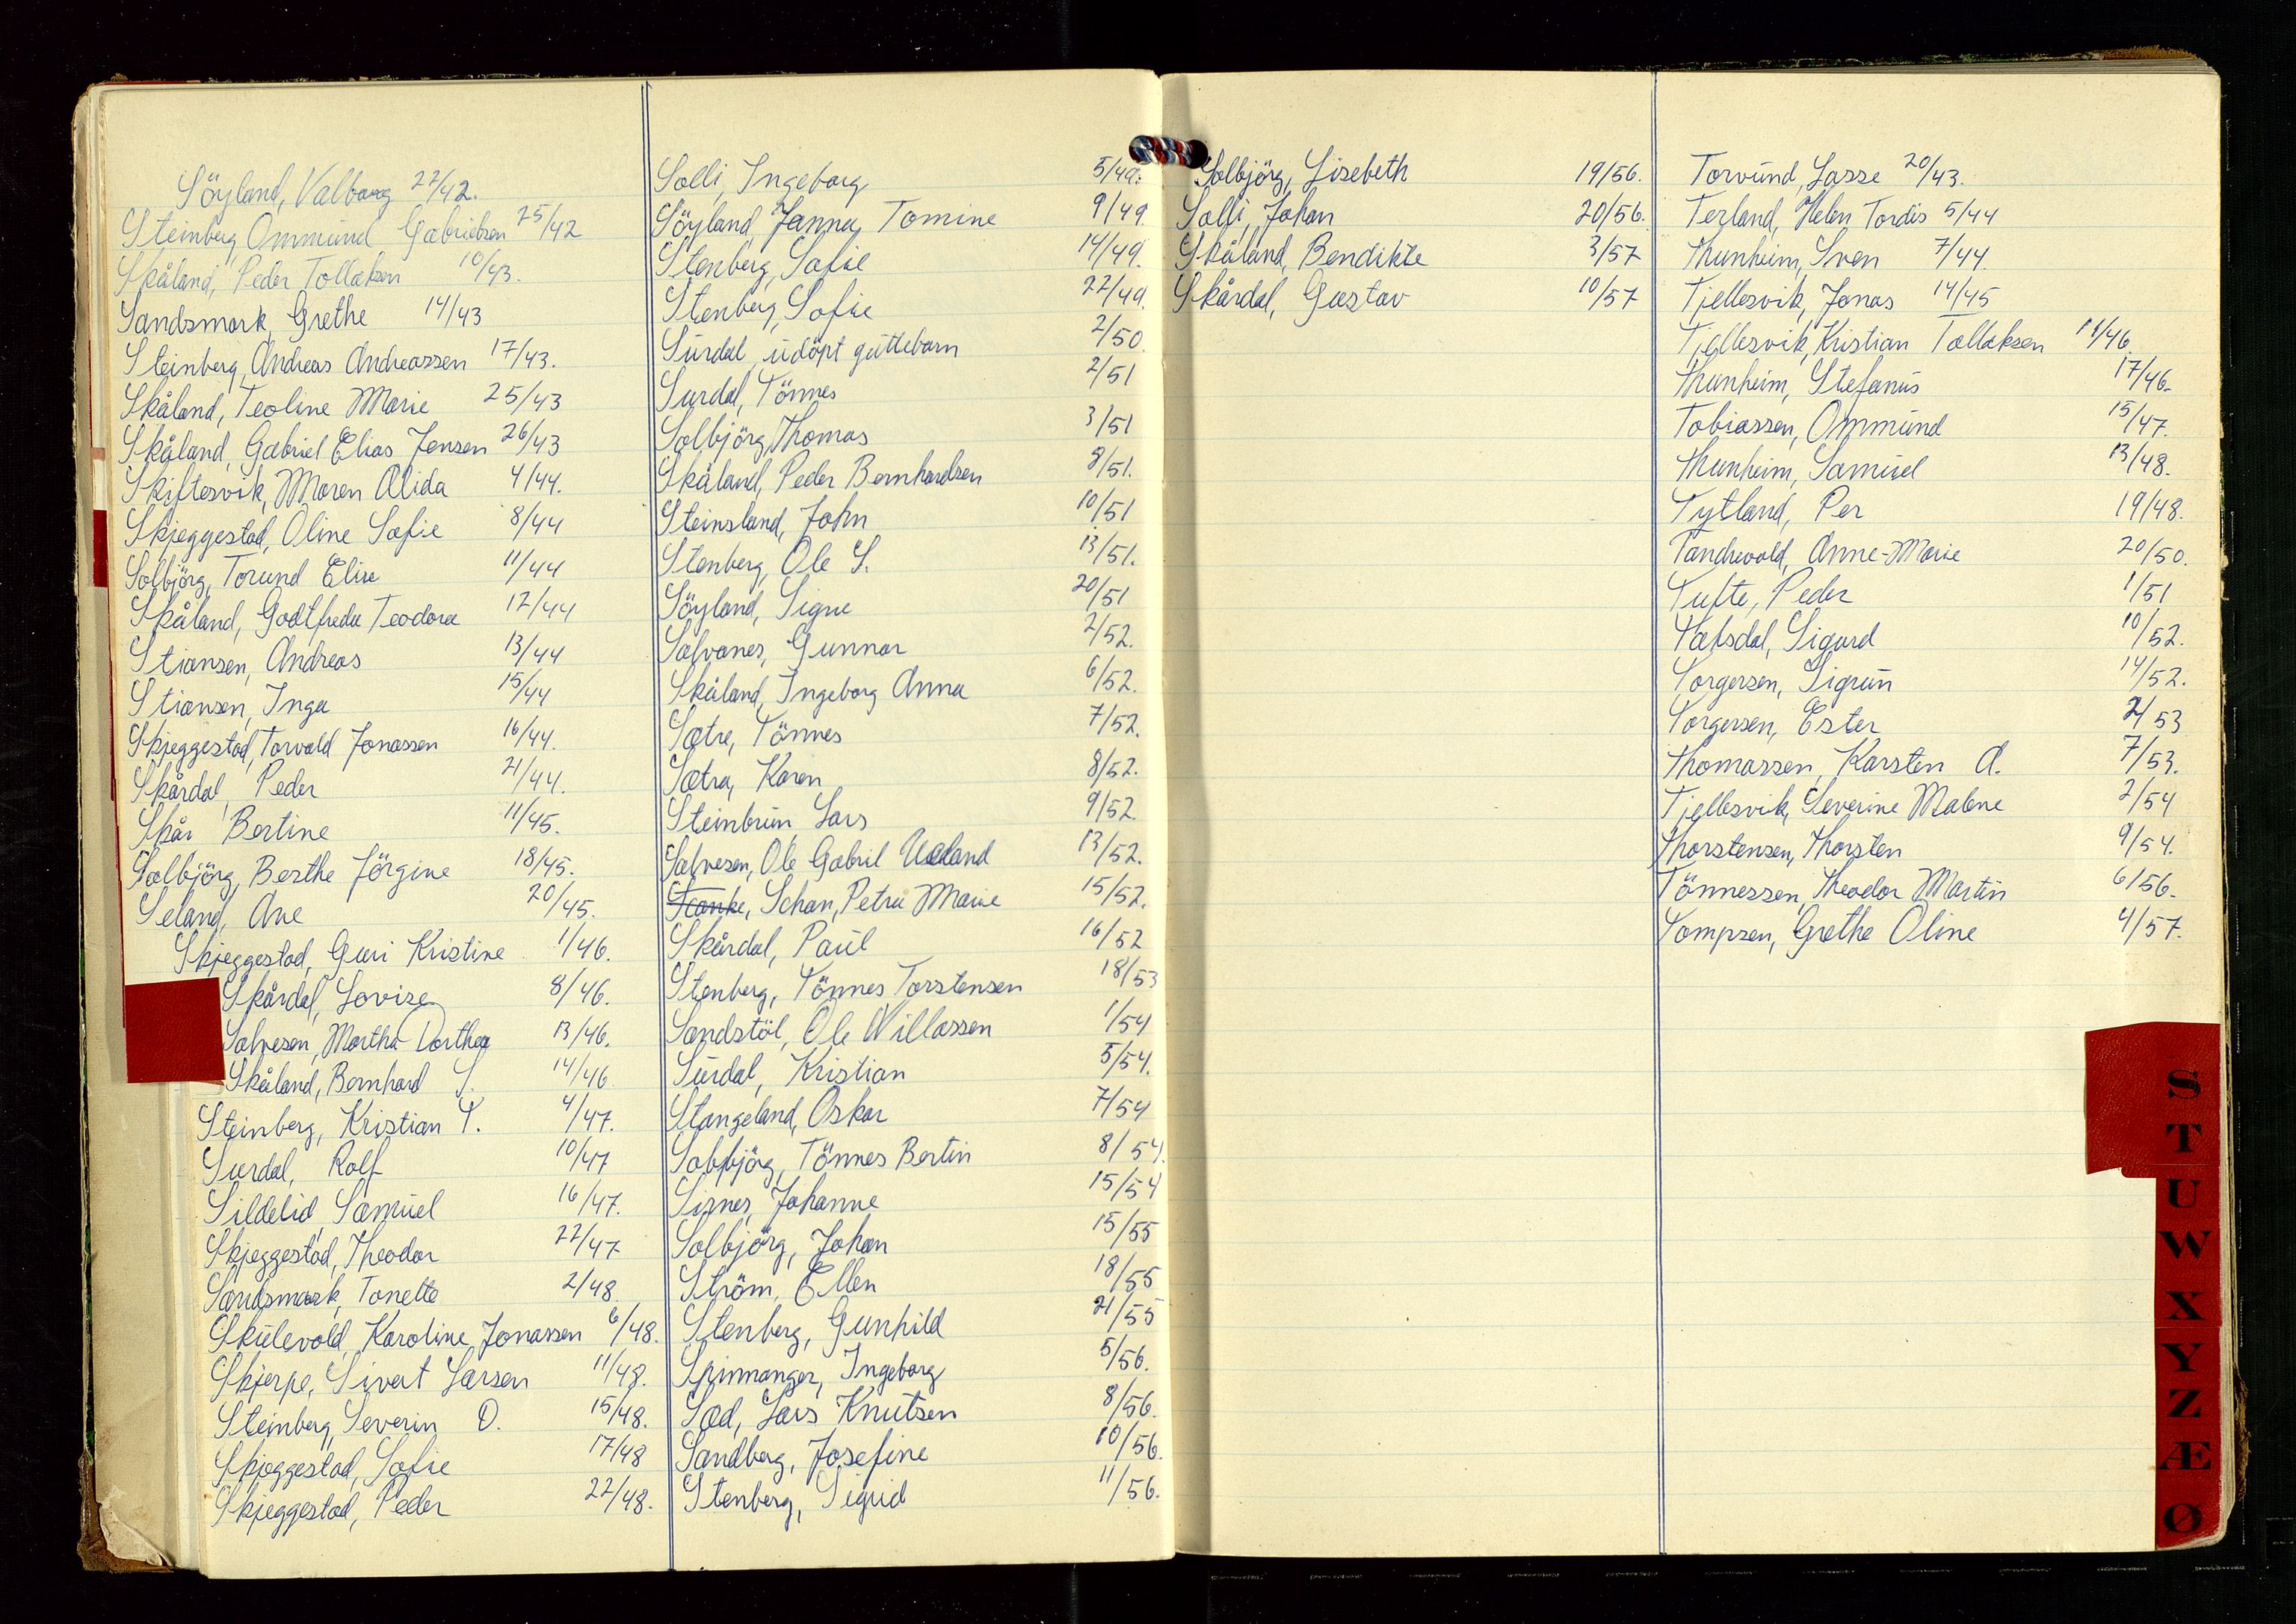 Söyland, Valborg 22/42.
Steinberg, Ommund Gabrielsen 25/42
Skåland, Peder Tollaksen 10/43.
Sandsmark, Grethe 14/43
Steinberg, Andreas Andreassen 17/43.
Skåland, Teoline Marie 25/43
Skåland, Gabriel Elias Jensen 26/43
Skiftesvik, Maren Alida 4/44.
Skjeggestad, Oline Sofie 8/44
Solbjörg, Torund Elise 11/44
Skåland, Godtfreda Teodora 12/44
Stiansen, Andreas 13/44
Stiansen, Inga 15/44
Skjeggestad, Torvald Jonassen 16/44.
Skårdal, Peder 21/44.
Skår Bertine 11/45.
Solbjörg, Berthe Jörgine 18/45.
Seland, Ane 20/45.
Skjeggestad, Guri Kristine 1/46.
Skårdal, Lovise 8/46.
Salvesen, Martha Dorthea 13/46.
Skåland, Bernhard S. 14/46.
Steinberg, Kristian T. 4/47.
Surdal, Rolf 10/47
Sildelid, Samuel 16/47.
Skjeggestad, Theodor 22/47
Sandsmark, Tonette 2/48.
Skulevold, Karoline Jonassen 6/48.
Skjerpe, Sivert Larsen 11/48.
Steinberg, Severin O. 15/48.
Skjeggestad, Sofie 17/48
Skjeggestad, Peder 22/48.
Solli, Ingeborg 5/49.
Söyland, Janna Tomine 9/49
Stenberg, Sofie 14/49.
Stenberg, Sofie 22/49.
Surdal, udöpt guttebarn 2/50.
Surdal, Tönnes 2/51
Solbjörg, Thomas 3/51
Skåland, Peder Bernhardsen 8/51.
Steinsland, John 10/51
Stenberg, Ole S. 13/51.
Söyland, Signe 20/51
Salvanes, Gunnar 2/52.
Skåland, Ingeborg Anna 6/52.
Sætre, Tönnes 7/52.
Sætra, Karen 8/52.
Steinbrun Lars 9/52.
Salvesen, Ole Gabril Ueland 13/52.
Stanke, Schan, Petra Marie 15/52.
Skårdal, Paul 16/52
Stenberg, Tönnes Torstensen 18/53
Sandstöl, Ole Willassen 1/54
Surdal, Kristian 5/54.
Stangeland, Oskar 7/54
Solbjörg, Tönnes Bertin 8/54.
Sirnes, Johanne 15/54
Solbjörg, Johan 15/55
Ström, Ellen 18/55
Stenberg, Gunhild 21/55
Spinnanger, Ingeborg 5/56.
Sæd, Lars Knutsen 8/56.
Sandberg, Josefine 10/56.
Stenberg, Sigrid 11/56.
Solbjörg, Lisebeth 19/56.
Solli, Johan 20/56.
Skåland, Bendikte 3/57
Skårdal, Gustav 10/57
Torvund, Lasse 20/43.
Terland, Helen Tordis 5/44
Thunheim, Sven 7/44.
Tjellesvik, Jonas 14/45
Tjellesvik, Kristian Tollaksen 11/46
Thunheim, Stefanus 17/46.
Tobiassen, Ommund 15/47.
Thunheim, Samuel 13/48.
Tytland, Per 19/48.
Tandrevold, Anne-Marie 20/50.
Tufte, Peder 1/51
Tatsdal, Sigurd 10/52.
Torgersen, Sigrun 14/52.
Torgersen, Ester 2/53
Thomassen, Karsten A. 7/53.
Tjellesvik, Severine Malene 2/54
Thorstensen, Thorsten 9/54.
Tönnessen, Theodor Martin 6/56.
Tompsen, Grethe Oline 4/57.
S
T
U
W
X
Y
Z
Æ
Ø